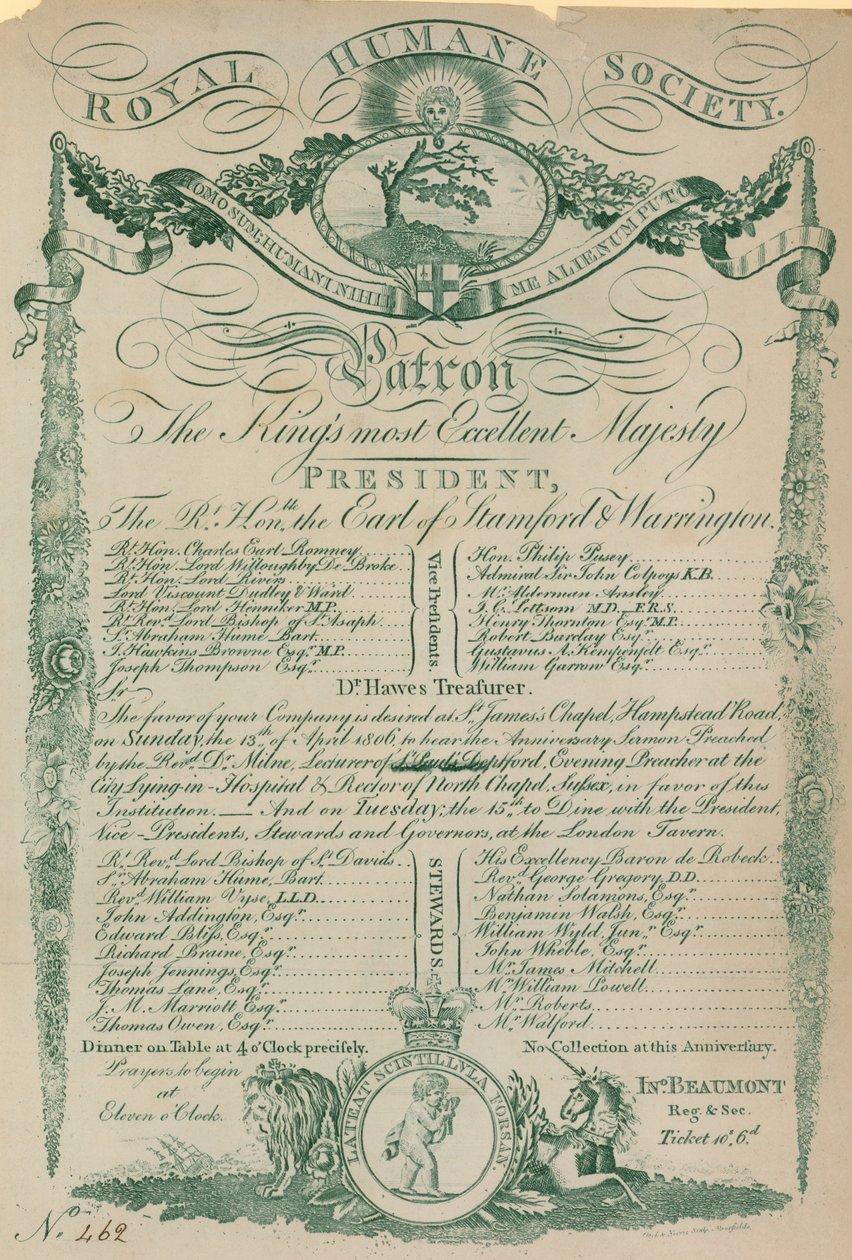 ROYAL HUMANE SOCIETY.
HOMO SUM; HUMANI NIHIL
A ME ALIENUM PUTO
Patron
The King's most Excellent Majesty
PRESIDENT,
The Rt. Honble. the Earl of Stamford & Warrington.
Rt. Hon. Charles Earl Romney
Rt. Hon. Lord Willoughby De Broke
Rt. Hon. Lord Rivers
Lord Viscount Dudley & Ward
Rt. Hon. Lord Henniker M.P.
Rt. Revd. Lord Bishop of St. Asaph
Sr. Abraham Hume Bart.
I. Hawkins Browne Esqr. M.P.
Joseph Thompson Esqr.
Vice Presidents.
Hon. Philip Pusey
Admiral Sir John Colpoys K.B.
Mr. Alderman Ansley
I. C. Lettsom M.D. F.R.S.
Henry Thornton Esqr. M.P.
Robert Barclay Esqr.
Gustavus A. Kempenfelt Esqr.
William Garrow Esqr.
Dr. Hawes Treasurer.
Sir
The favor of your Company is desired at St. James's Chapel, Hampstead Road,
on Sunday, the 13th. of April 1806, to hear the Anniversary Sermon Preached
by the Revd. Dr. Milne, Lecturer of St. Paul's Deptford, Evening Preacher at the
City Lying-in-Hospital & Rector of North Chapel, Sussex, in favor of this
Institution. — And on Tuesday, the 15th. to Dine with the President,
Vice-Presidents, Stewards and Governors, at the London Tavern.
Rt. Revd. Lord Bishop of St. Davids
Sr. Abraham Hume, Bart.
Revd. William Vyse, L.L.D.
John Addington, Esqr.
Edward Bliss, Esqr.
Richard Braine, Esqr.
Joseph Jennings, Esqr.
Thomas Lane, Esqr.
J. M. Marriott Esqr.
Thomas Owen, Esqr.
STEWARDS.
His Excellency Baron de Robeck
Revd. George Gregory, D.D.
Nathan Solamons, Esqr.
Benjamin Walsh, Esqr.
William Wyld, Junr. Esqr.
John Wheble, Esqr.
Mr. James Mitchell
Mr. William Powell
Mr. Roberts
Mr. Walford
Dinner on Table at 4 o'Clock precisely.
No Collection at this Anniversary.
Prayers to begin
at
Eleven o'Clock.
LATEAT SCINTILLVLA FORSAN
Jno. BEAUMONT
Reg. & Sec.
Ticket 10s. 6d.
No. 462